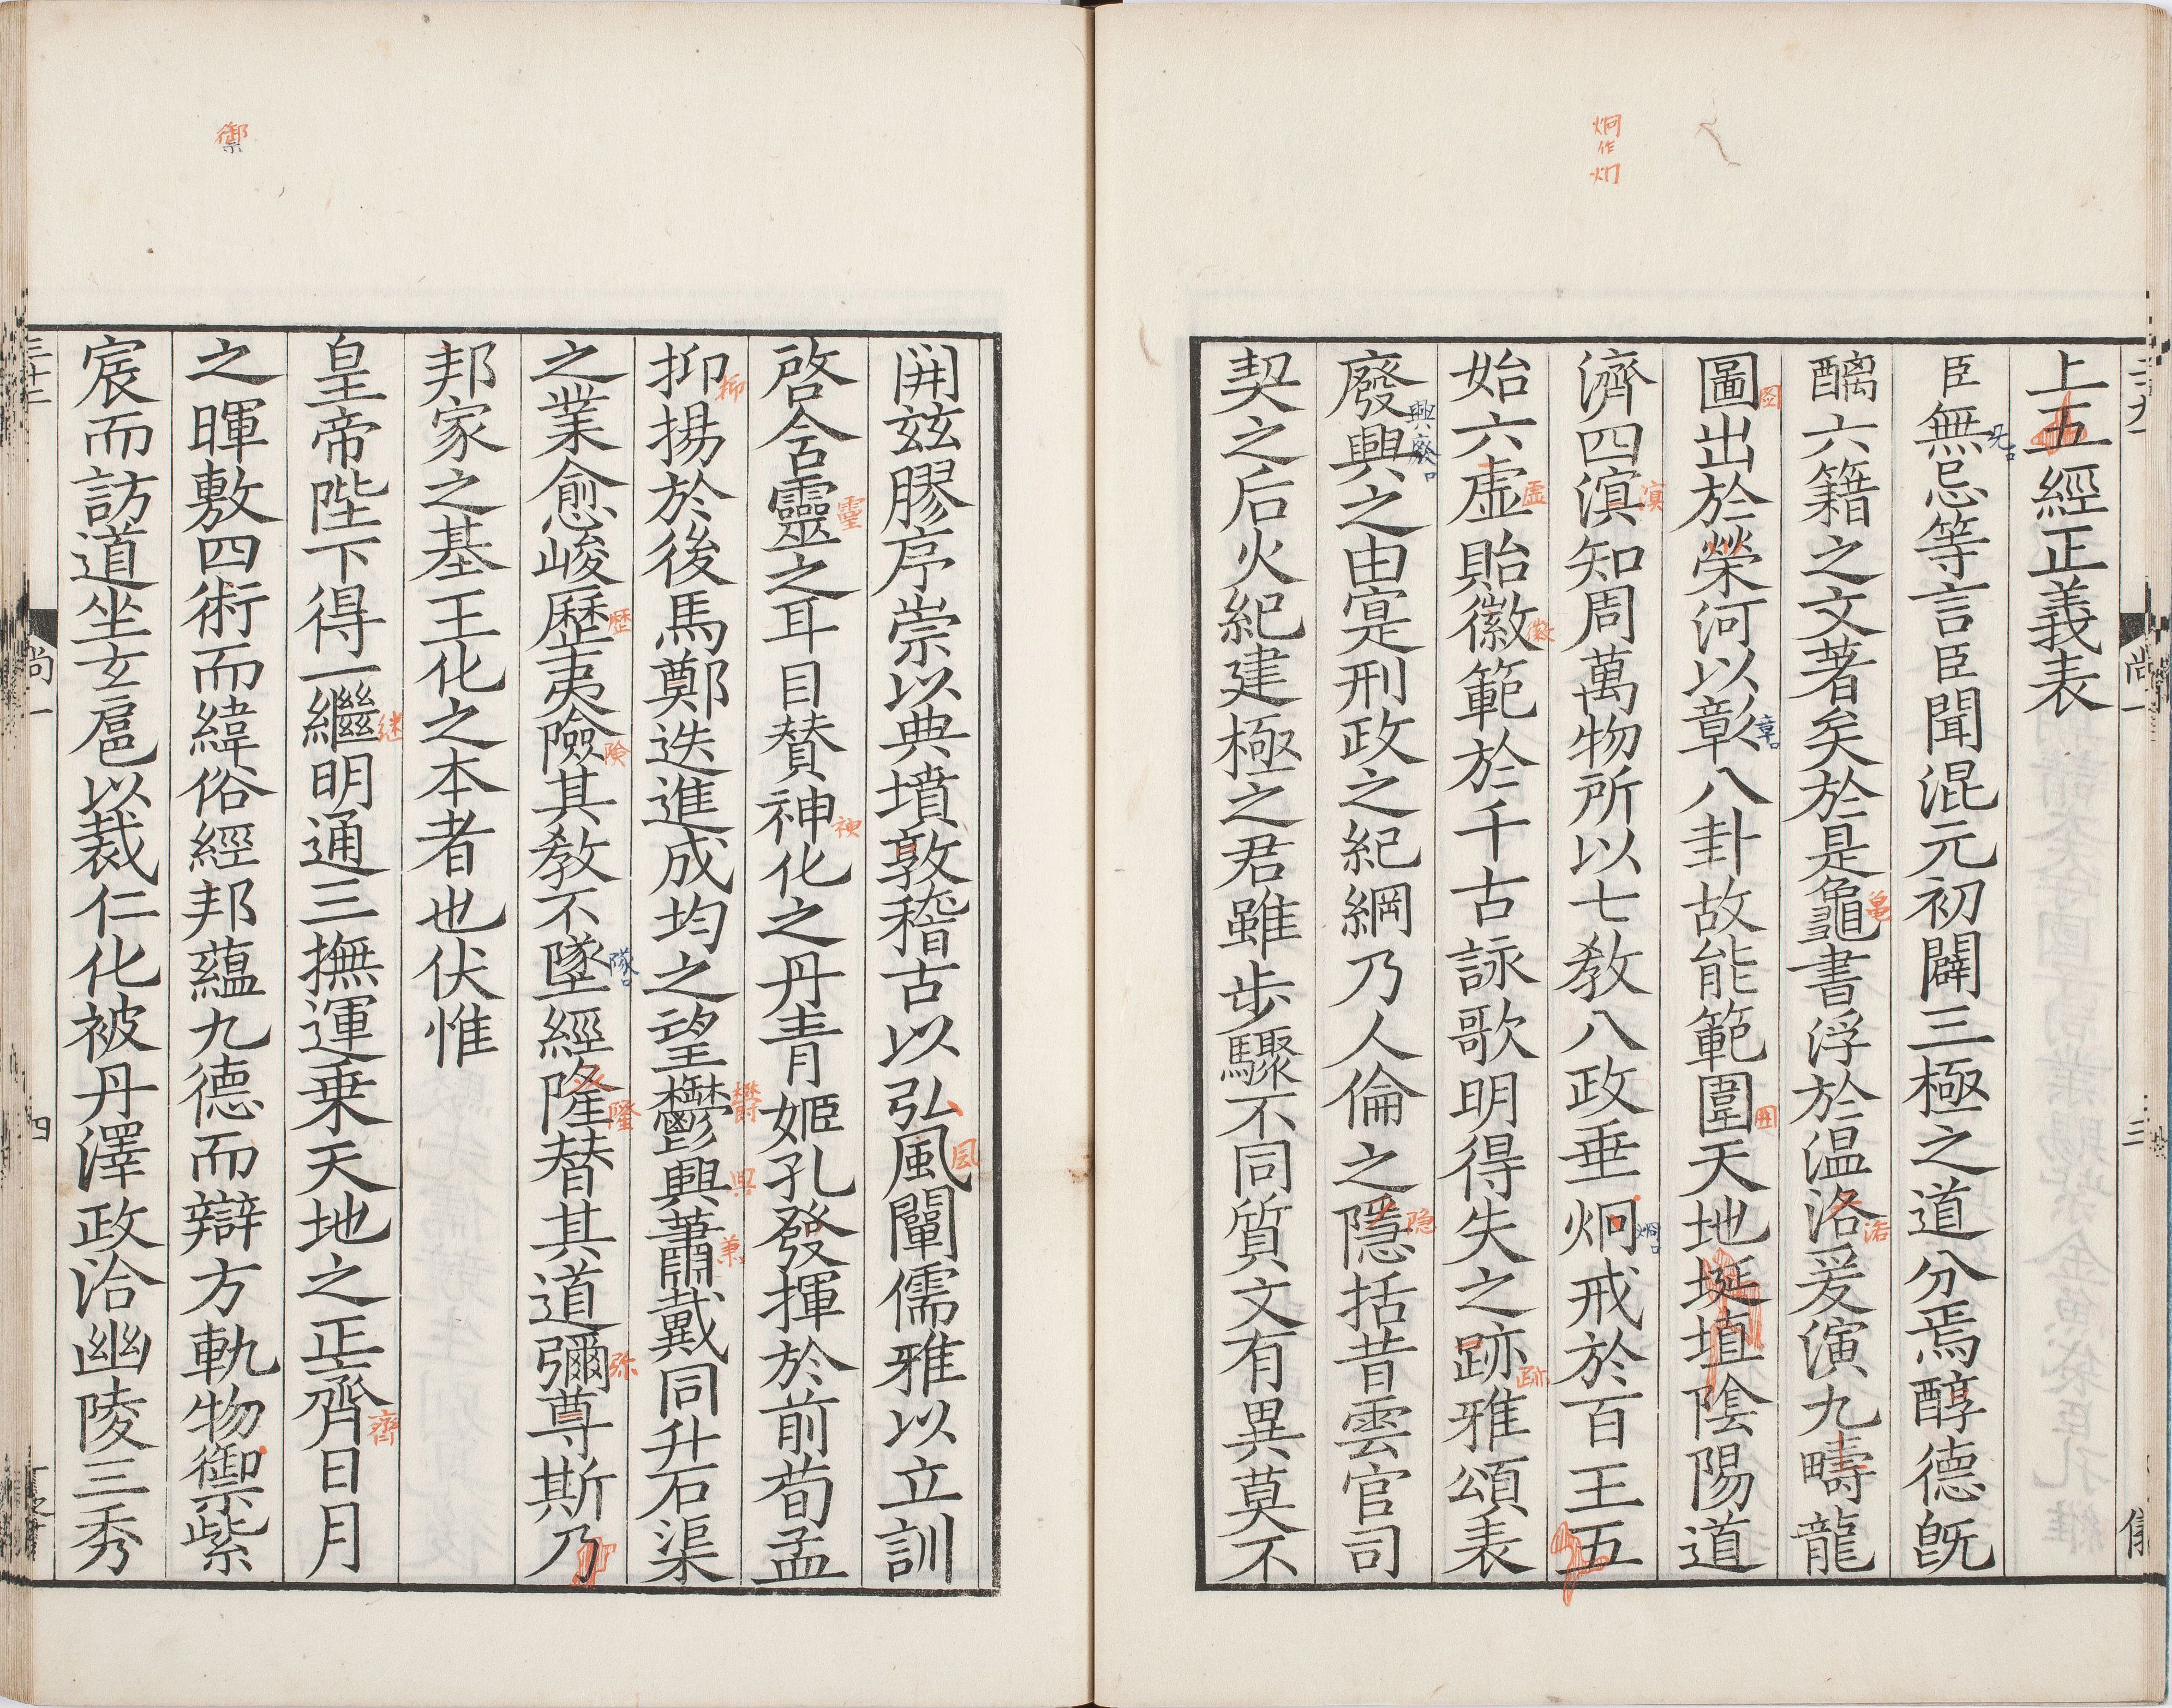 上五經正義表
臣無忌等言臣聞混元初闢三極之道分焉醇德旣
醨六籍之文著矣於是龜書浮於温洛爰演九疇龍
圖出於榮河以彰八卦故能範圍天地埏埴陰陽道
濟四溟知周萬物所以七敎八政垂炯戒於百王五
始六虛貽徽範於千古詠歌明得失之跡雅頌表
廢興之由寔刑政之紀綱乃人倫之隱括昔雲官司
契之后火紀建極之君雖步驟不同質文有異莫不
開玆膠序崇以典墳敦稽古以弘風闡儒雅以立訓
啓含靈之耳目賛神化之丹青姬孔發揮於前荀孟
抑揚於後馬鄭迭進成均之望鬱興蕭戴同升石渠
之業愈峻歷夷險其敎不墜經隆替其道彌尊斯乃
邦家之基王化之本者也伏惟
皇帝陛下得一繼明通三撫運乗天地之正齊日月
之暉敷四術而緯俗經邦蘊九德而辯方軌物御紫
宸而訪道坐玄扈以裁仁化被丹澤政洽幽陵三秀
尚一
三
尚一
四
炯作炯
禦
无
亀
洛
圖
章
囲
溟
炯
虚
徽
跡
興廢
隐
風
靈
神
抑
欝
興
兼
歴
険
隊
隆
弥
継
齊